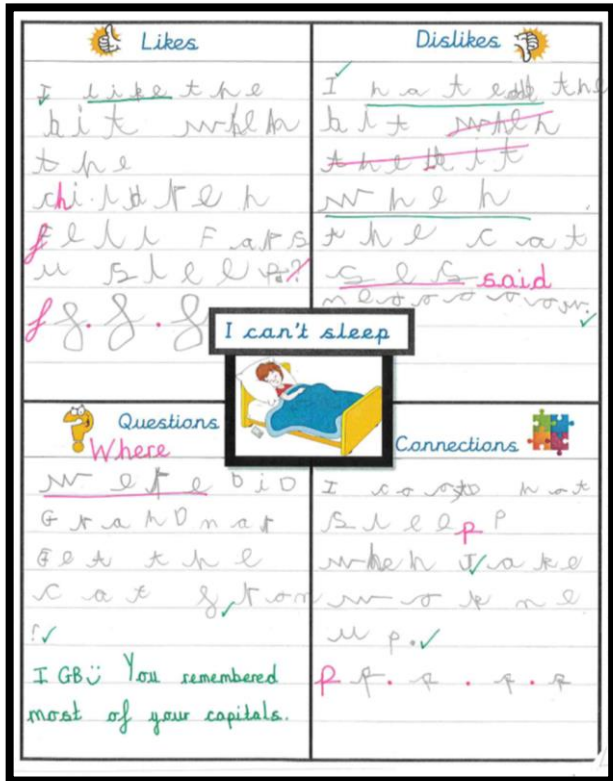 Likes
I like the
bit when
the
children
fell Fars
u sleep.?
f f . f . f
Dislikes
I hate the
bit when
the bit
when
the cat
ses said
meooooow.
I can't sleep
Questions
Where
were DiD
GranDnar
Get the
cat from
?
I GB You remembered
most of your capitals.
Connections
I not
sleep p
when Jake
wok me
up.
p p . p . p . p